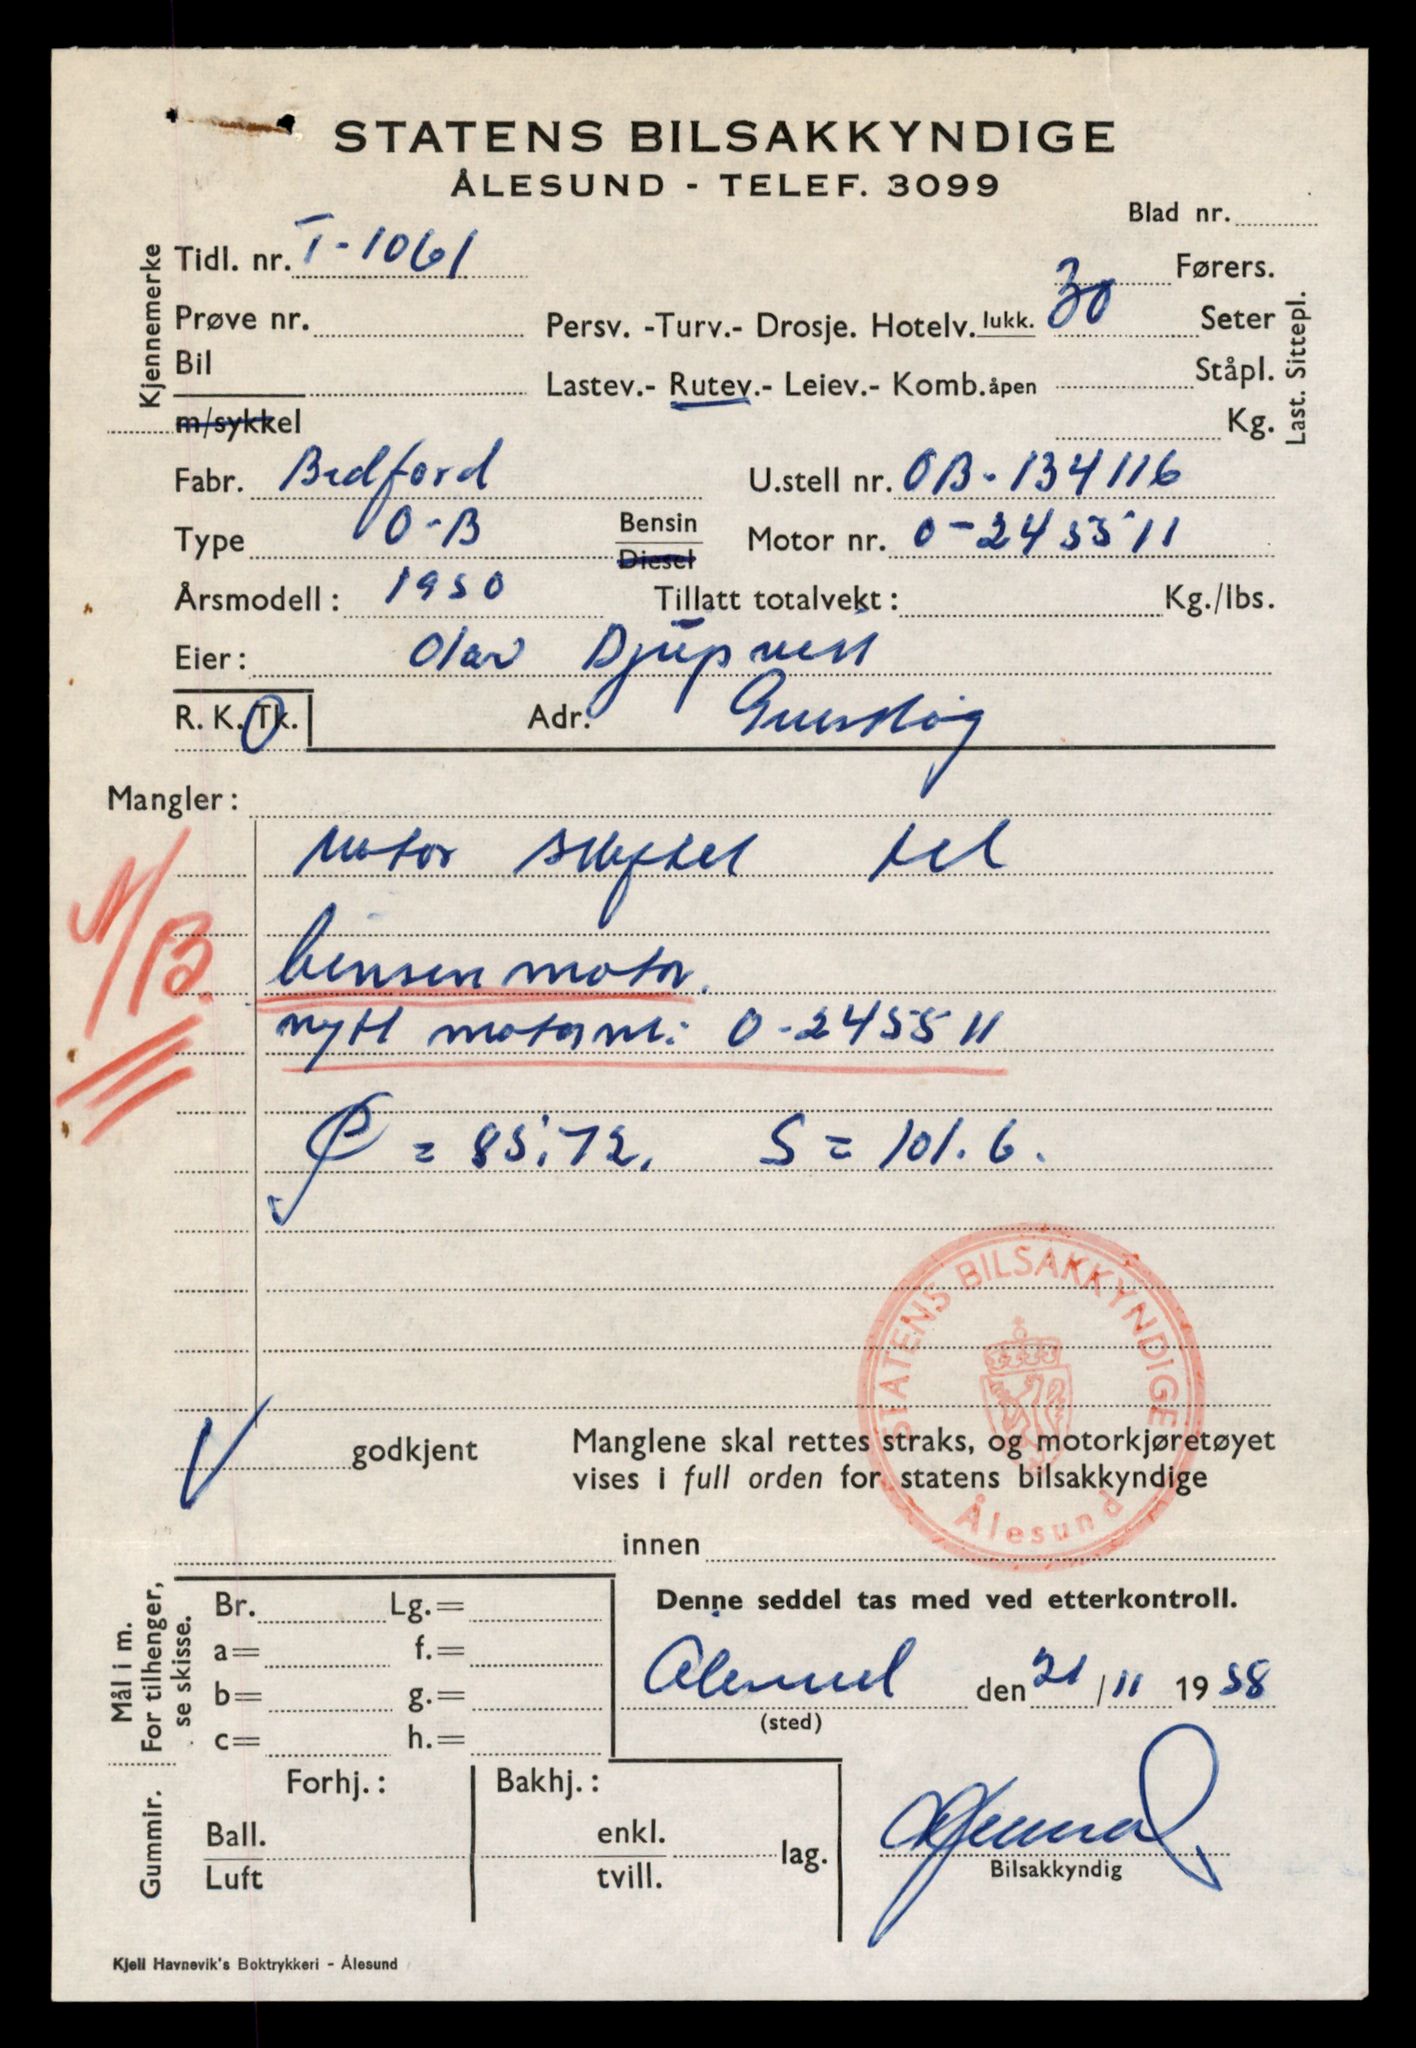 STATENS BILSAKKYNDIGE
ÅLESUND - TELEF. 3099
Blad nr.
Kjennemerke
Tidl. nr. T-1061
Førers.
Prøve nr.
Persv. -Turv.- Drosje. Hotelv. lukk. 30 Seter
Bil
m/sykkel
Lastev.- Rutev.- Leiev.- Komb. åpen
Ståpl.
Kg.
Last. Sittepl.
Fabr. Bedford
U.stell nr. OB-134116
Type O-B
Bensin
Diesel
Motor nr. O-245511
Årsmodell: 1950
Tillatt totalvekt: Kg./lbs.
Eier: Olav Djupvest
R. K. Tk.
Adr.
Mangler:
Motor skiftet tel
bensin motor.
nytt motornr: O-245511
N/B.
= 85.72. S = 101.6.
STATENS BILSAKKYNDIGE
Ålesund
V godkjent
Manglene skal rettes straks, og motorkjøretøyet
vises i full orden for statens bilsakkyndige
innen
Mål i m.
For tilhenger,
se skisse.
Br. Lg.=
a= f.=
b= g.=
c= h.=
Denne seddel tas med ved etterkontroll.
Ålesund den 21/11 1958
(sted)
Gummir.
Forhj.:
Bakhj.:
Ball.
Luft
enkl.
tvill.
lag.
Bilsakkyndig
Kjell Havnevik's Boktrykkeri - Ålesund